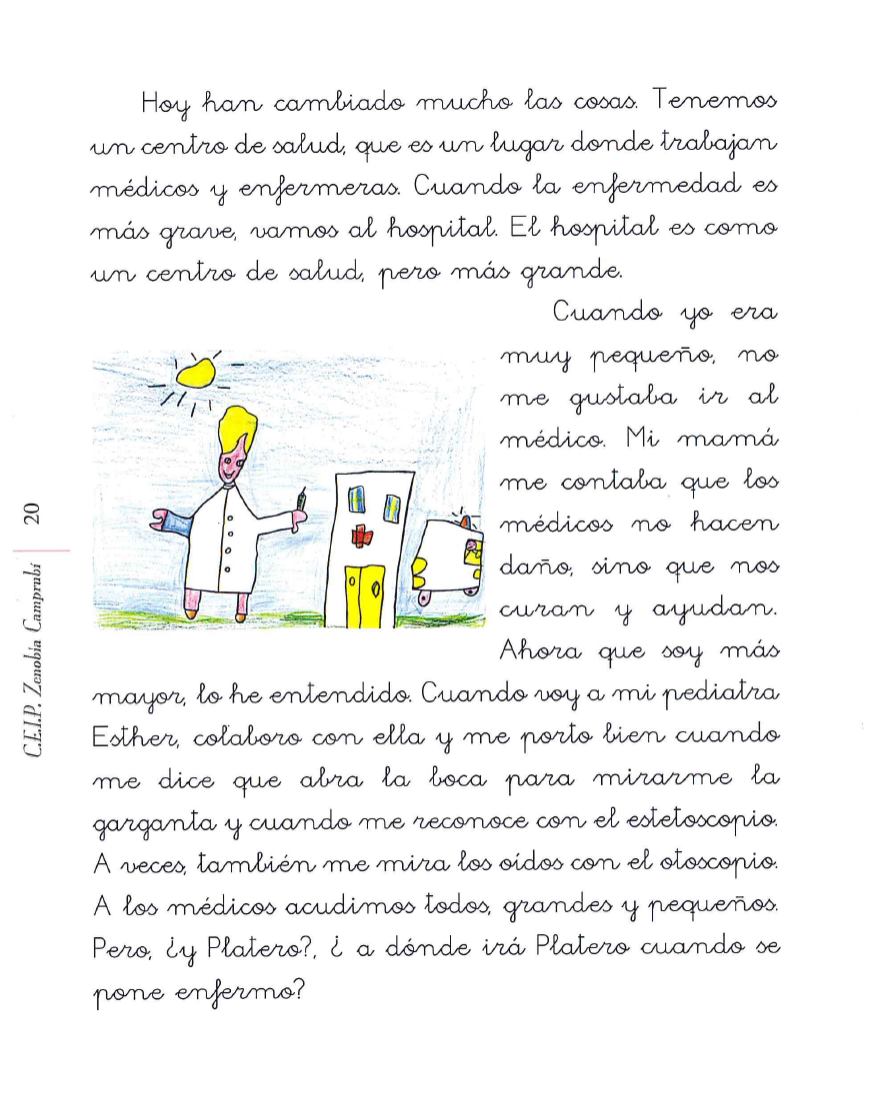 Hoy han cambiado mucho las cosas. Tenemos
un centro de salud, que es un lugar donde trabajan
médicos y enfermeras. Cuando la enfermedad es
más grave, vamos al hospital. El hospital es como
un centro de salud, pero más grande.
Cuando yo era
muy pequeño, no
me gustaba ir al
médico. Mi mamá
me contaba que los
médicos no hacen
daño, sino que nos
curan y ayudan.
Ahora que soy más
mayor, lo he entendido. Cuando voy a mi pediatra
Esther, colaboro con ella y me porto bien cuando
me dice que abra la boca para mirarme la
garganta y cuando me reconoce con el estetoscopio.
A veces, también me mira los oídos con el otoscopio.
A los médicos acudimos todos, grandes y pequeños.
Pero, ¿y Platero?, ¿ a dónde irá Platero cuando se
pone enfermo?
C.E.I.P. Zenobia Camprubí
20